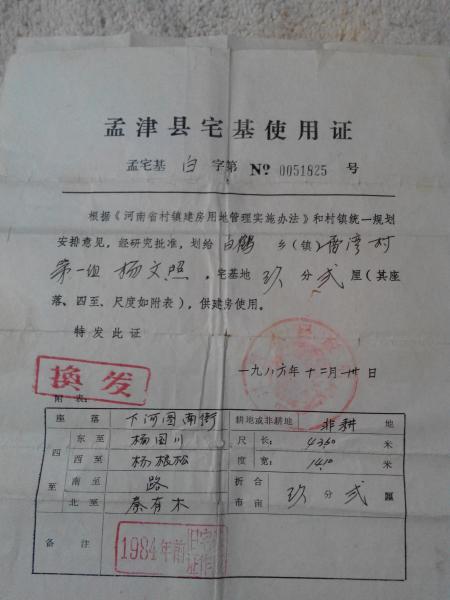 孟津县宅基使用证
孟宅基 白 字第 № 0051825 号
根据《河南省村镇建房用地管理实施办法》和村镇统一规划
安排意见，经研究批准，划给 白鹤 乡（镇） 湾村
第一组 杨文照，宅基地 玖 分 贰 厘（其座
落、四至、尺度如附表），供建房使用。
特发此证
一九八六年十二月 日
换发
附表：
座落 下河图南街 耕地或非耕地 非耕 地
四至 东至 杨国川 尺度 长： 43.60 米
西至 杨根松 宽： 14.10 米
南至 路 折合市亩 玖 分 贰 厘
北至 秦有木
备注 1984年前